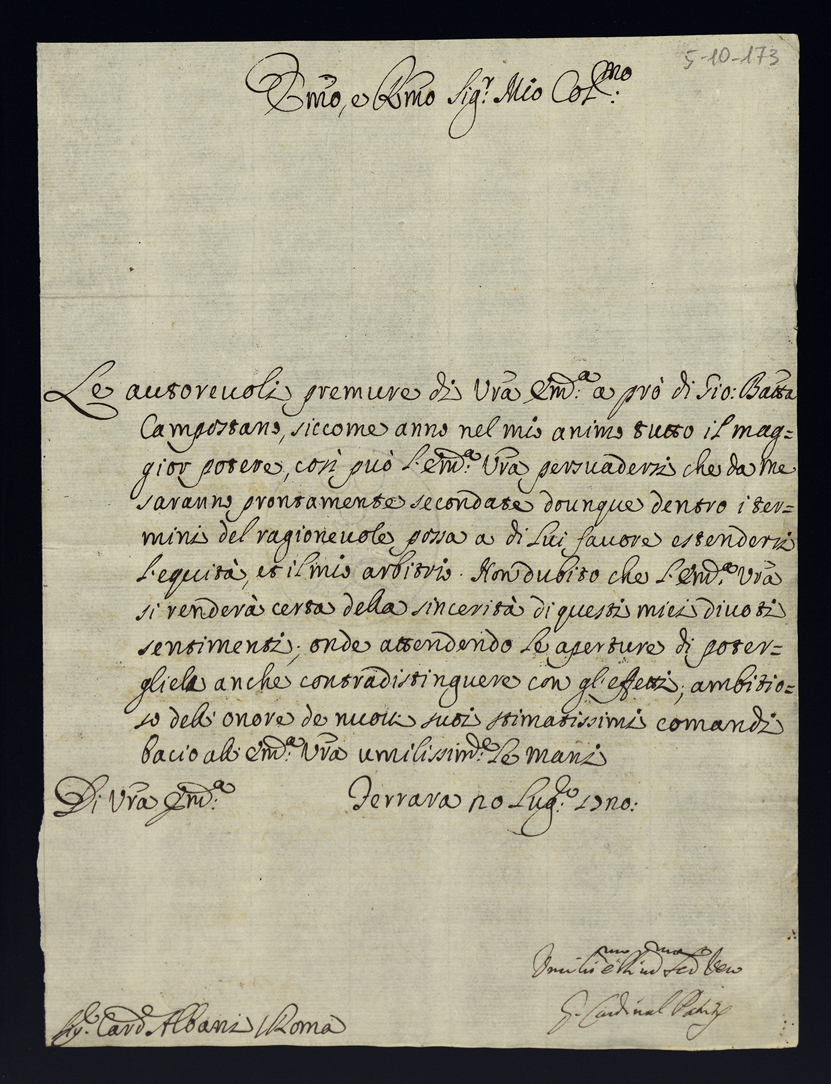 5-10-173
Emo, e Rmo Sig.r Mio Col.mo
Le autorevoli premure di Vra Em.a a prò di Gio: Batta
Campostano, siccome anno nel mio animo tutto il mag=
gior potere, così può l'Em.a Vra persuadersi che da me
saranno prontamente secondate dounque dentro i ter=
mini del ragionevole possa a di lui favore estendersi
l'equità, et il mio arbitrio. Non dubito che l'Em.a Vra
si renderà certa della sincerità di questi miei divoti
sentimenti; onde attendendo le aperture di poter=
gliela anche contradistinguere con gl'effetti; ambitio=
so dell'onore de nuovi suoi stimatissimi comandi
bacio all'Em.a Vra umilissim.e le mani
Di Vra Em.a Ferrara 20 Lug.o 1720:
Card Albani Roma
Cardinal